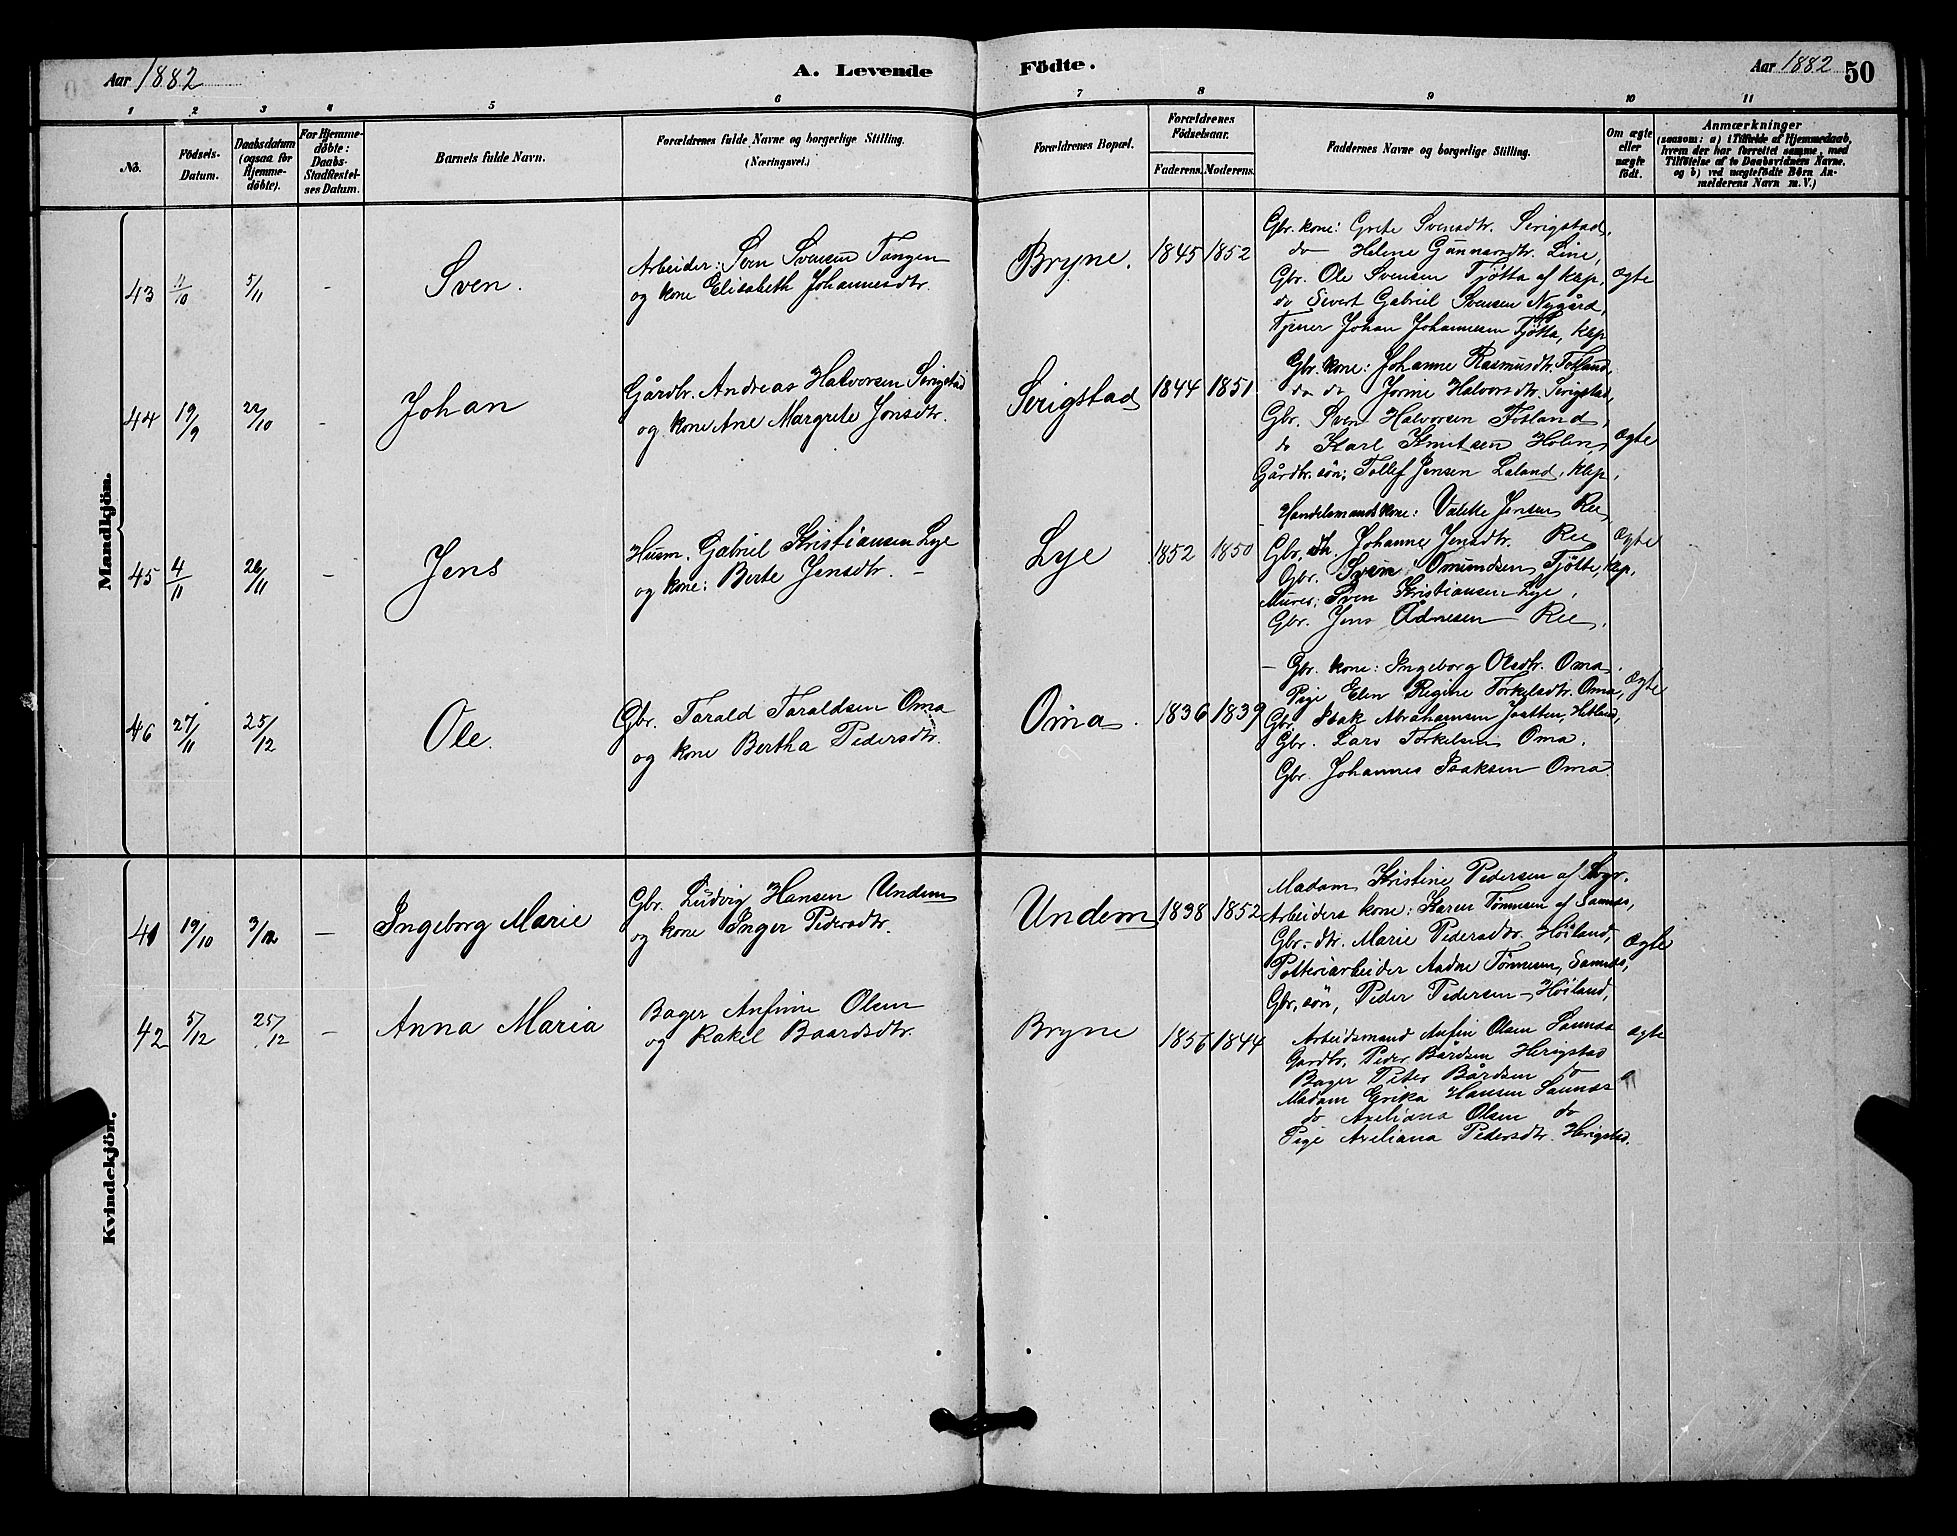 Aar 1882 A. Levende
Fødte. Aar 1882 50
1 2 3 4 5 6 7 8 9 10 11
No.
Fødsels-
Datum.
Daabsdatum
(ogsaa for
Hjemme-
døbte).
For Hjemme-
døbte:
Daabs-
Stadfæstel-
ses Datum.
Barnets fulde Navn.
Forældrenes fulde Navne og borgerlige Stilling.
(Næringsvei.)
Forældrenes Bopæl.
Forældrenes
Fødselsaar.
Faderens. Moderens.
Faddernes Navne og borgerlige Stilling.
Om ægte
eller
uægte
født.
Anmærkninger
(saasom: a) i Tilfælde af Hjemmedaab,
hvem der har forrettet samme, med
Tilføielse af to Daabsvidners Navne,
og b) ved uægtefødte Børn An-
melderens Navn m. V.)
Mandkjön.
43 11/10 5/11 - Sven.
Arbeider: Sven Svensen Tangen
og kone Elisabeth Johannesdtr.
Bryne. 1845 1852
Gbr. kone: Grete Svensdtr. Serigstad,
do Helene Gunnarsdtr. Line,
Gbr. Ole Svensen Tjøtta af Klep,
do Sivert Gabriel Svensen Nygård,
Tjener Johan Johannesen Tjøtta, Klep
ægte
44 19/9 22/10 - Johan
Gårdbr. Andreas Halvorsen Serigstad
og kone Ane Margrete Jonsdtr.
Serigstad 1844 1851
Gbr. kone: Johanne Rasmusdtr. Fotland,
do do Jorine Halvorsdtr. Serigstad,
Gbr. Sven Halvorsen Fosland,
do Karl Knutsen Holen,
Gårdbr. søn: Tollef Jensen Laland, Klep,
ægte
45 4/11 26/11 - Jens
Husm. Gabriel Kristiansen Lye
og kone: Berte Jensdtr. -
Lye 1852 1850
- Handelsmands kone: Valette Jensen Ree,
Gbr. dtr. Johanne Jensdtr. Ree
Gbr. Sven Omundsen Tjøtte, Klp,
Murer: Sven Kristiansen Lye,
Gbr. Jens Ådnesen Ree,
ægte
46 27/11 25/12 Ole.
Gbr. Tarald Taraldsen Oma
og kone Bertha Pedersdtr.
Oma. 1836 1839
- Gbr. kone: Ingeborg Olsdtr. Oma.
Pige Elen Regine Torkelsdtr. Oma,
Gbr. Isak Abrahamsen Jaatten, Hetland,
Gbr. Lars Torkelsen Oma.
Gbr. Johannes Isaksen Oma.
ægte
Kvindekjön.
41 19/10 3/12 - Ingeborg Marie
Gbr. Ludvig Hansen Undem
og kone Inger Pedersdtr.
Undem 1838 1852
Madam Kristine Pedersen af
Arbeiders kone: Karen Tønnesen af Sannes,
Gbr. dtr. Marie Pedersdtr. Høiland,
Potteriarbeider Aadne Tønnesen, Sannes,
Gbr. søn, Peder Pedersen - Høiland,
ægte
42 5/12 25/12 - Anna Maria
Bager Anfinn Olsen
og Rakel Baardsdtr.
Bryne 1856 1844
Arbeidsmand Anfin Olsen Sannes
Gardbr. Peder Bårdsen Herigstad
Bager Peter Bårdsen do
Madam Erika Hansen Sannes
do Axeliana Olsen do
Pige Axeliana Pedersdtr. Herigstad.
ægte